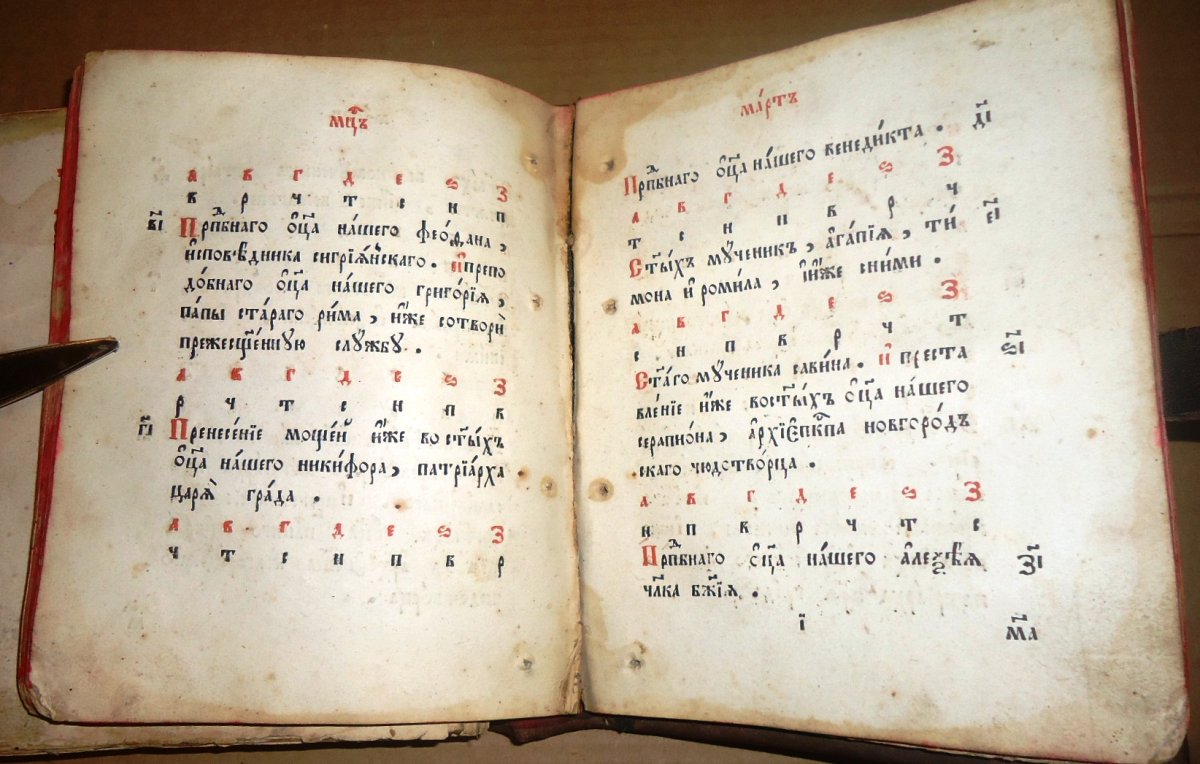 мц҃ъ
а в г д е ѕ З
в р ч т с н п
в҃і Прпⷣбнаго ѻ҆ц҃а на́шего феѻфа́на ,
и҆сповѣ́дника сигрїа́нскаго . и҆ препо
до́бнаго ѻ҆ц҃а на́шего григо́рїѧ ,
папы ста́раго ри́ма , и҆́же сотвори̑
прежесщ҃е́нную слу́жбу .
а в г д е ѕ З
р ч т с н п в
г҃і Пренесе́нїе моще́й и҆́же во ст҃ы́хъ
ѻ҆ц҃а на́шего никифора , патрїа́рха
царѧ̀ гра́да .
а в г д е ѕ З
ч т с н п в р
ма́ртъ
Прпⷣбнаго ѻ҆ц҃а на́шего венеди́кта . д҃і
а в г д е ѕ З
т с н п в р ч
Ст҃ы́хъ мꙋ́ченикъ , а҆га́пїѧ , ти є҃і
мона и҆ роми́ла , и҆̀и҆́же сни́ми .
а в г д е ѕ З
с н п в р ч т
Ст҃а́го мꙋ́ченика сави́на . и҆ преста ѕ҃і
вле́нїе и҆́же вост҃ы́хъ ѻ҆ц҃а на́шего
серапїо́на , а҆рхїе҆пкⷭ҇па новгоро́дъ
скаго чюдотво́рца .
а в г д е ѕ З
н п в р ч т с
Прпⷣбнаго ѻ҆ц҃а на́шего а҆ле́ѯѣѧ з҃і
чл҃ка бж҃їѧ .
і҃
м҃а